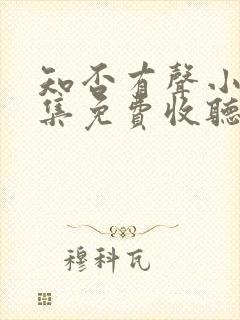 知否有聲小
集免費收聽
穆科瓦